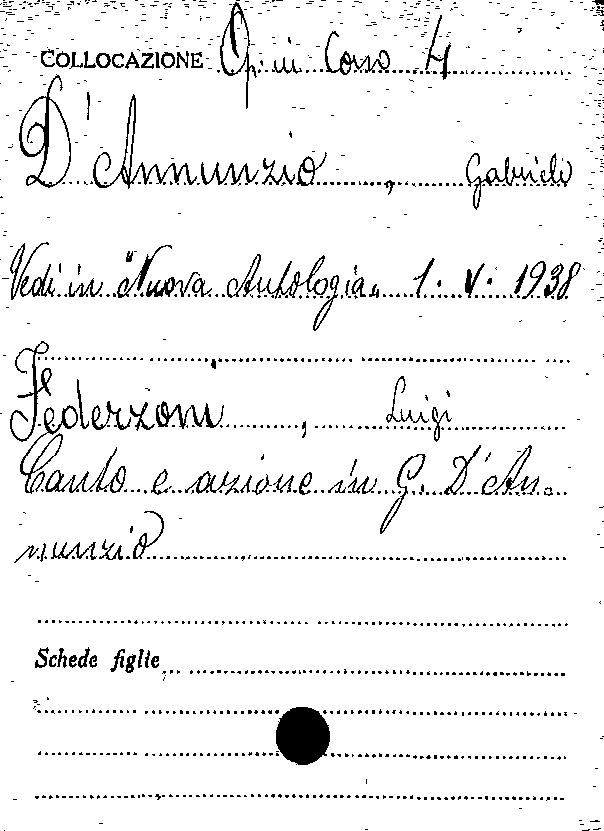 COLLOCAZIONE Op. in Corso 4
D'Annunzio, Gabriele
Vedi in "Nuova Antologia" 1. V. 1938
Federzoni, Luigi
Canto e azione in G. D'An-
nunzio
Schede figlie